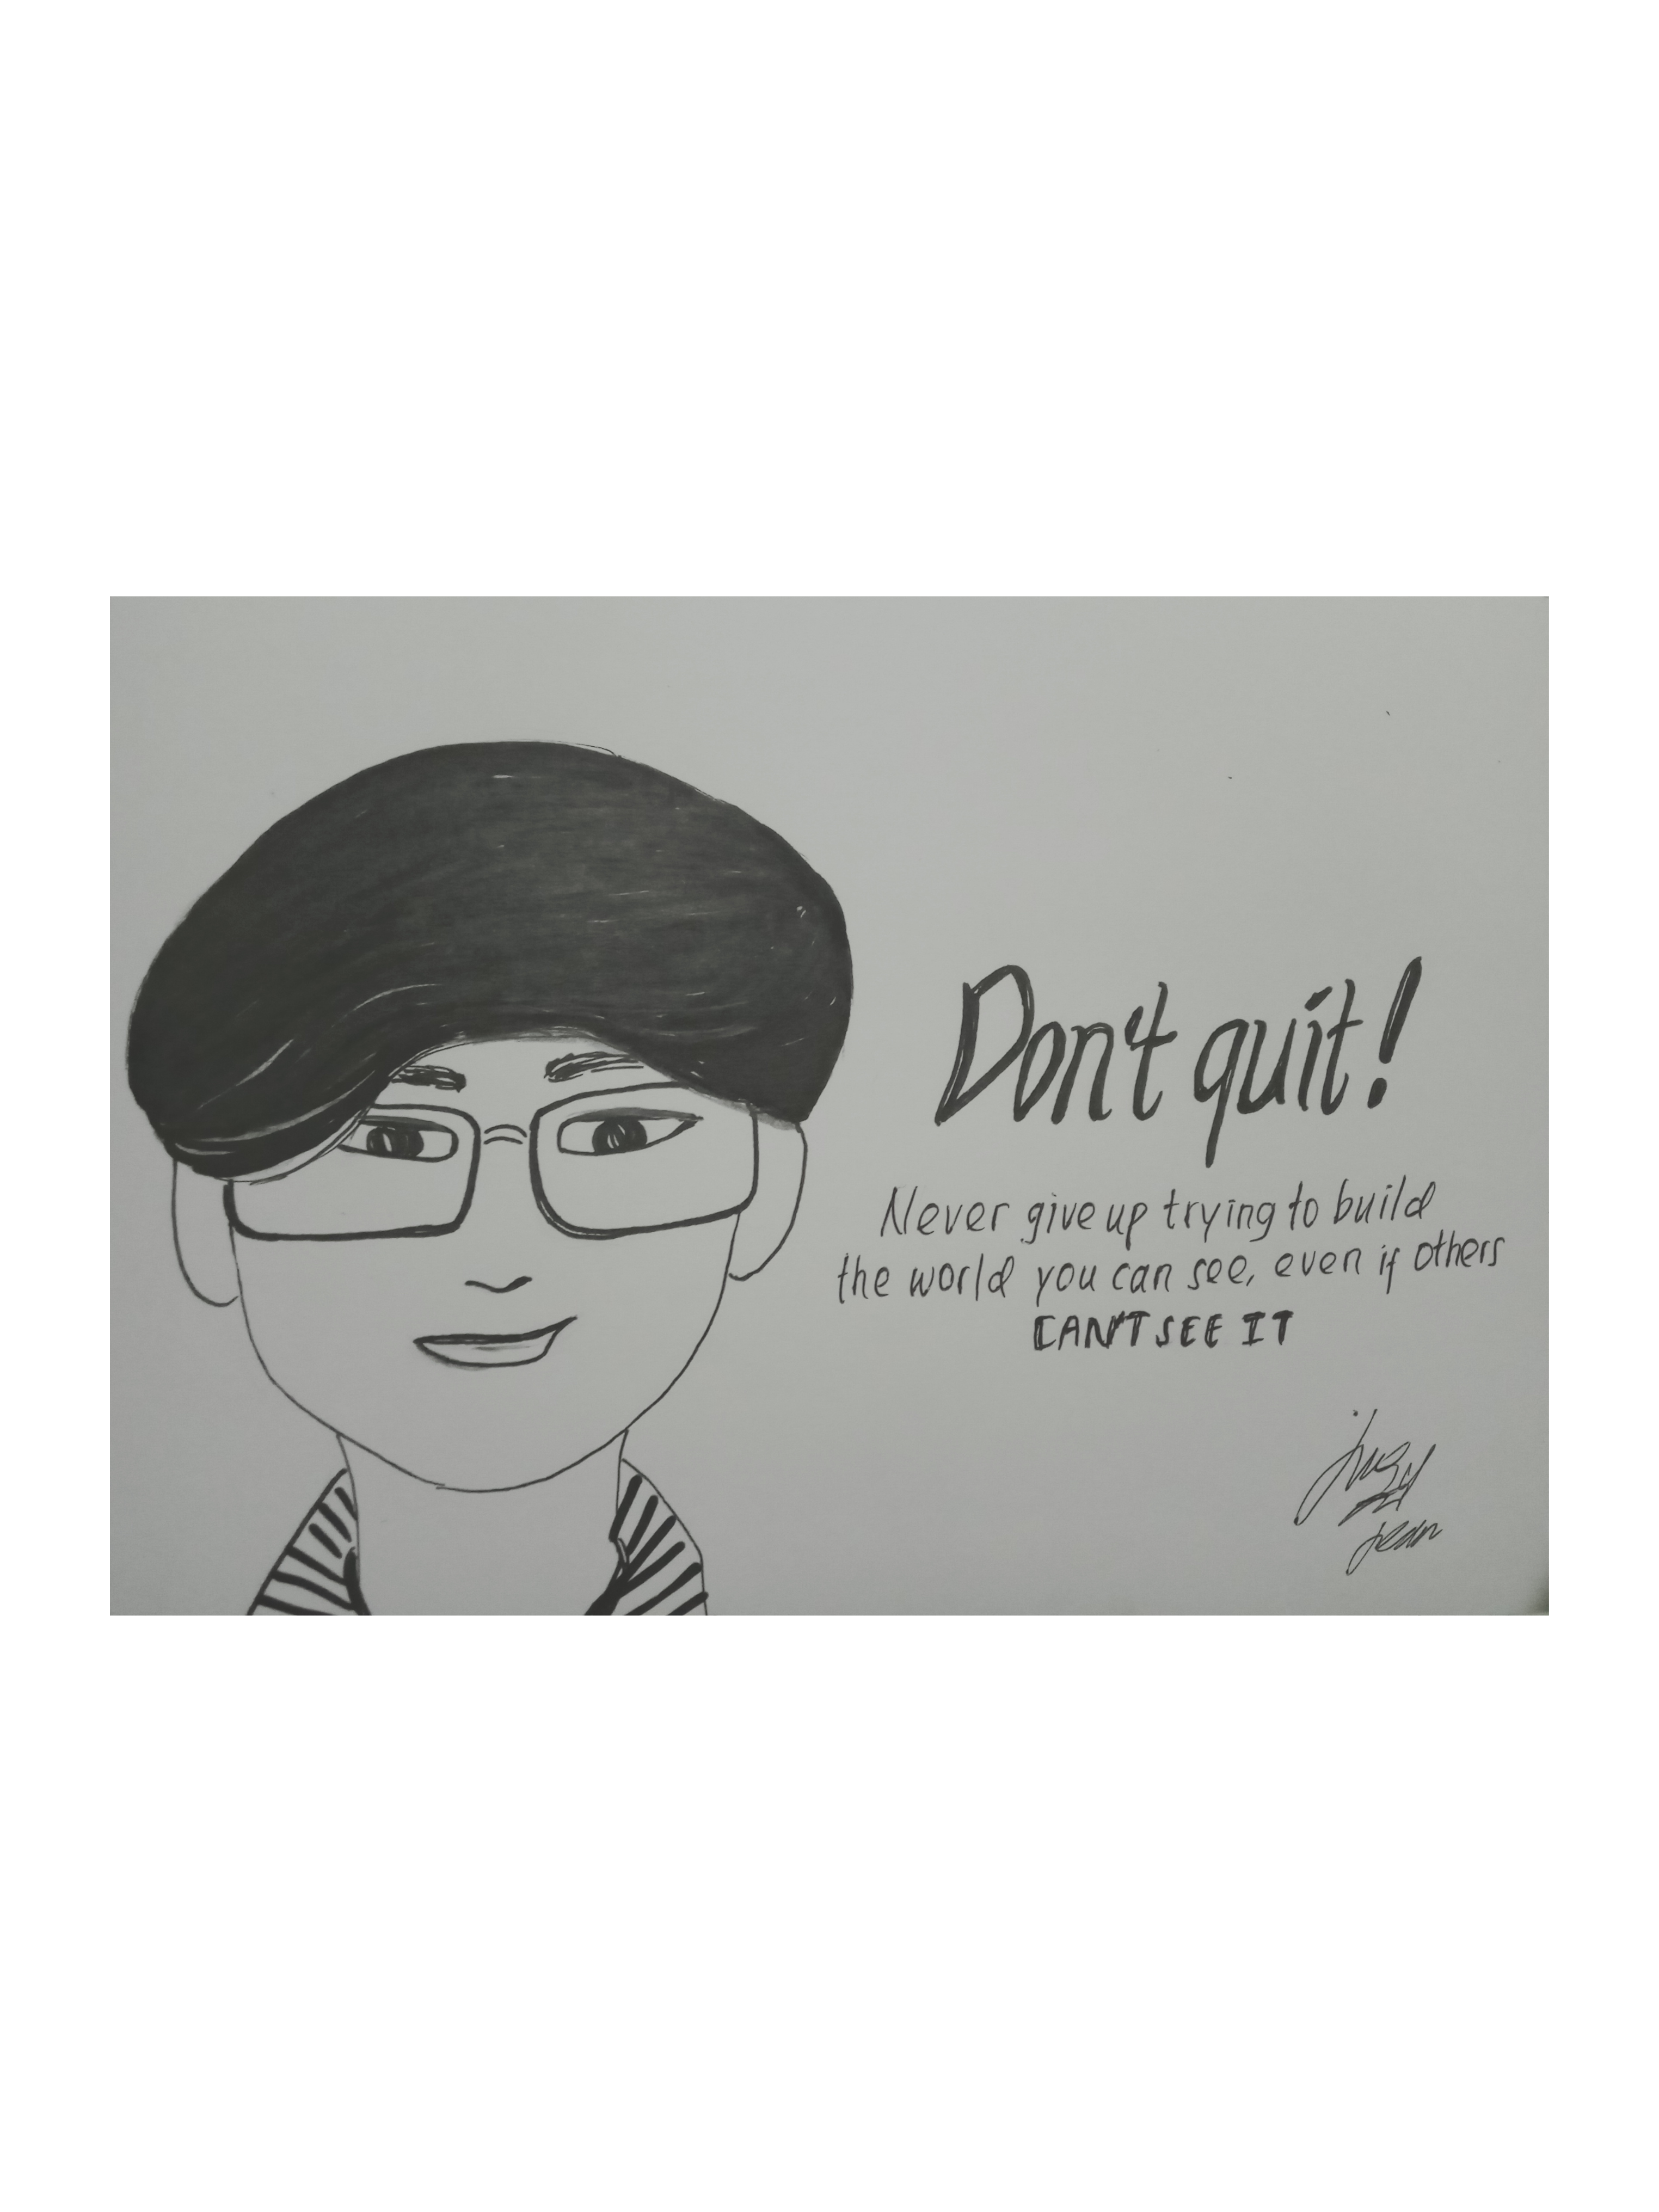 Don't quit!
Never give up trying to build
the world you can see, even if others
CAN'T SEE IT
jean